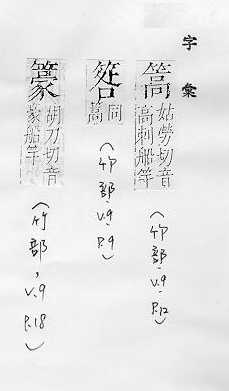 字彙
篙
姑勞切音
高刺船竿
(竹部,v.9,P.12)
同
篙
(竹部,v.9,P.9)
籇
胡刀切音
豪船竿
(竹部,v.9,P.18)